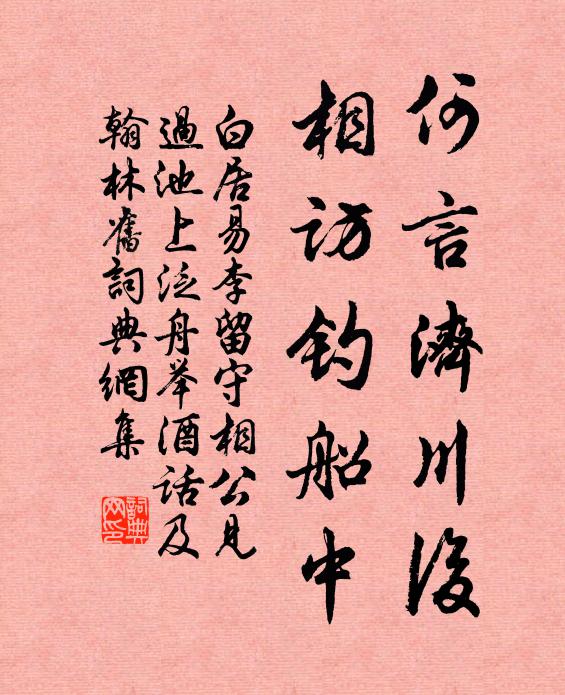 何言濟川後
相訪釣船中
白居易李留守相公見
過池上泛舟举酒話及
翰林舊詞典網集
詞典網印